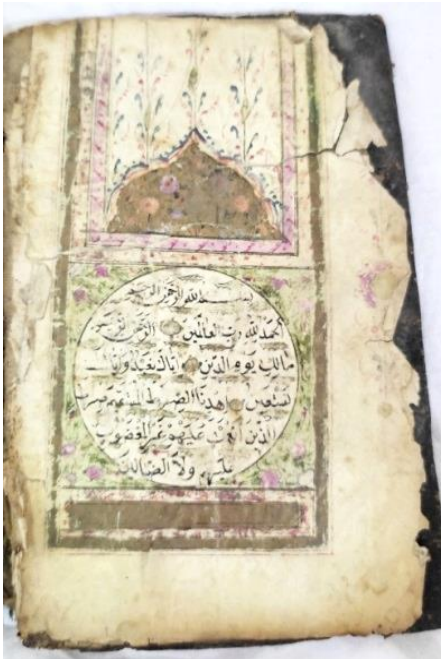 بسم الله الرحمن الرحيم
الحمد لله رب العالمين الرحمن الرحيم
مالك يوم الدين اياك نعبد واياك
نستعين اهدنا الصراط المستقيم صراط
الذين انعمت عليهم غير المغضوب
عليهم ولا الضالين